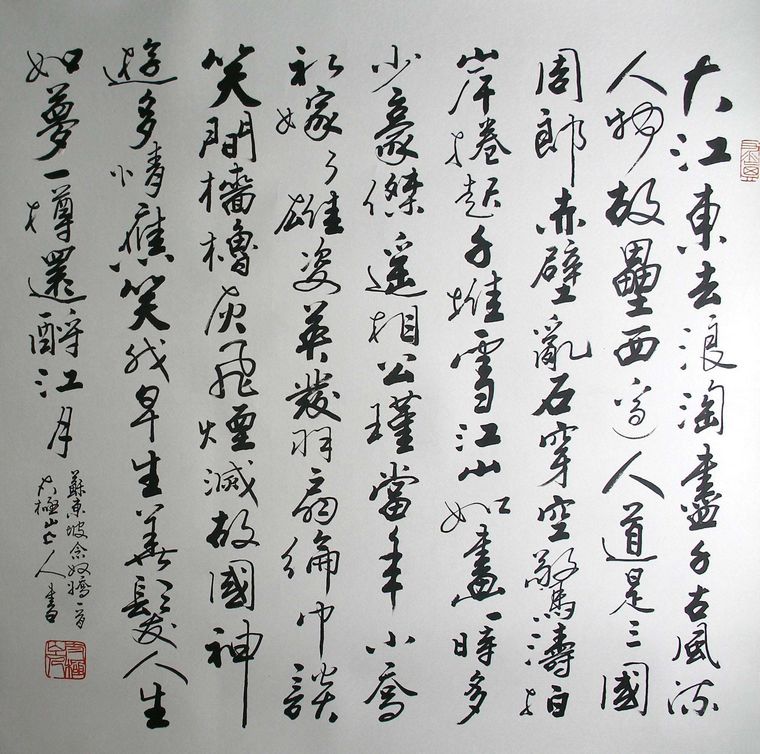 大江東去浪淘盡千古風流
人物故壘西邊人道是三國
周郎赤壁亂石穿空驚濤拍
岸捲起千堆雪江山如畫一時多
少豪傑遙想公瑾當年小喬
初嫁了雄姿英發羽扇綸巾談
笑間檣櫓灰飛煙滅故國神
遊多情應笑我早生華髮人生
如夢一樽還酹江月
蘇東坡念奴嬌一首
極山人書